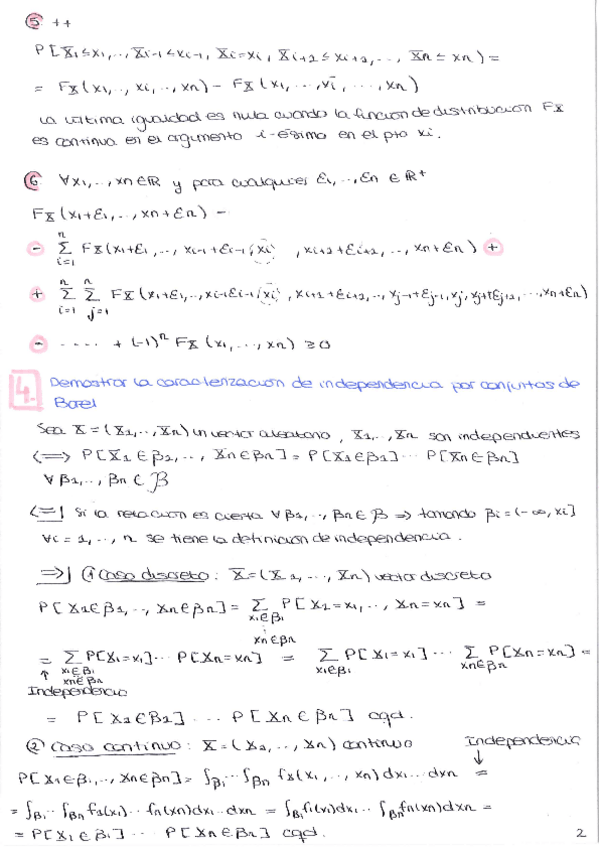 ⑤ ++
P[X1≤x1,..,Xi-1≤xi-1, Xi=xi, Xi+1≤xi+1,.., Xn≤xn)=
= FX(x1,..,xi,..,xn) - FX(x1,..,xi⁻,...,xn)
La última igualdad es nula cuando la función de distribución FX
es continua en el argumento i-ésimo en el pto xi.
⑥ ∀x1,..,xn∈ℝ y para cualquier ε1,..,εn ∈ ℝ+
FX(x1+ε1,..,xn+εn) -
- Σ(i=1..n) FX(x1+ε1,..,xi-1+εi-1, xi, xi+1+εi+1,..,xn+εn) +
+ Σ(i=1..n) Σ(j=1..n) FX(x1+ε1,..,xi-1εi-1, xi, xi+1+εi+1,..,xj-1+εj-1,xj,xj+1εj+1,..,xn+εn)
- .... + (-1)ⁿ FX(x1,..,xn) ≥0
4. Demostrar la caracterización de independencia por conjuntos de
Borel
Sea X=(X1,..,Xn) un vector aleatorio, X1,..,Xn son independientes
<=> P[X1∈β1,..,Xn∈βn]=P[X1∈β1]...P[Xn∈βn]
∀β1,..,βn ⊂ B
<=| Si la relación es cierta ∀β1,..,βn∈B => tomando βi=(-∞,xi]
∀i=1,..,n se tiene la definición de independencia.
=>| ① Caso discreto: X=(X1,...,Xn) vector discreto
P[X1∈β1,..,Xn∈βn]= Σ P[X1=x1,..,Xn=xn] =
x1∈β1
:
xn∈βn
= Σ P[X1=x1]...P[Xn=xn] = Σ P[X1=x1]... Σ P[Xn=xn] =
↑ x1∈β1 x1∈β1 xn∈βn
xn∈βn
Independencia
= P[X1∈β1] ... P[Xn∈βn] cqd.
② Caso continuo: X=(X1,..,Xn) continuo Independencia
↓
P[X1∈β1,..,Xn∈βn]=∫β1..∫βn fX(x1,..,xn)dx1...dxn =
=∫β1..∫βn f1(x1)..fn(xn)dx1..dxn = ∫β1 f1(x1)dx1..∫βn fn(xn)dxn =
= P[X1∈β1]... P[Xn∈βn] cqd.
2